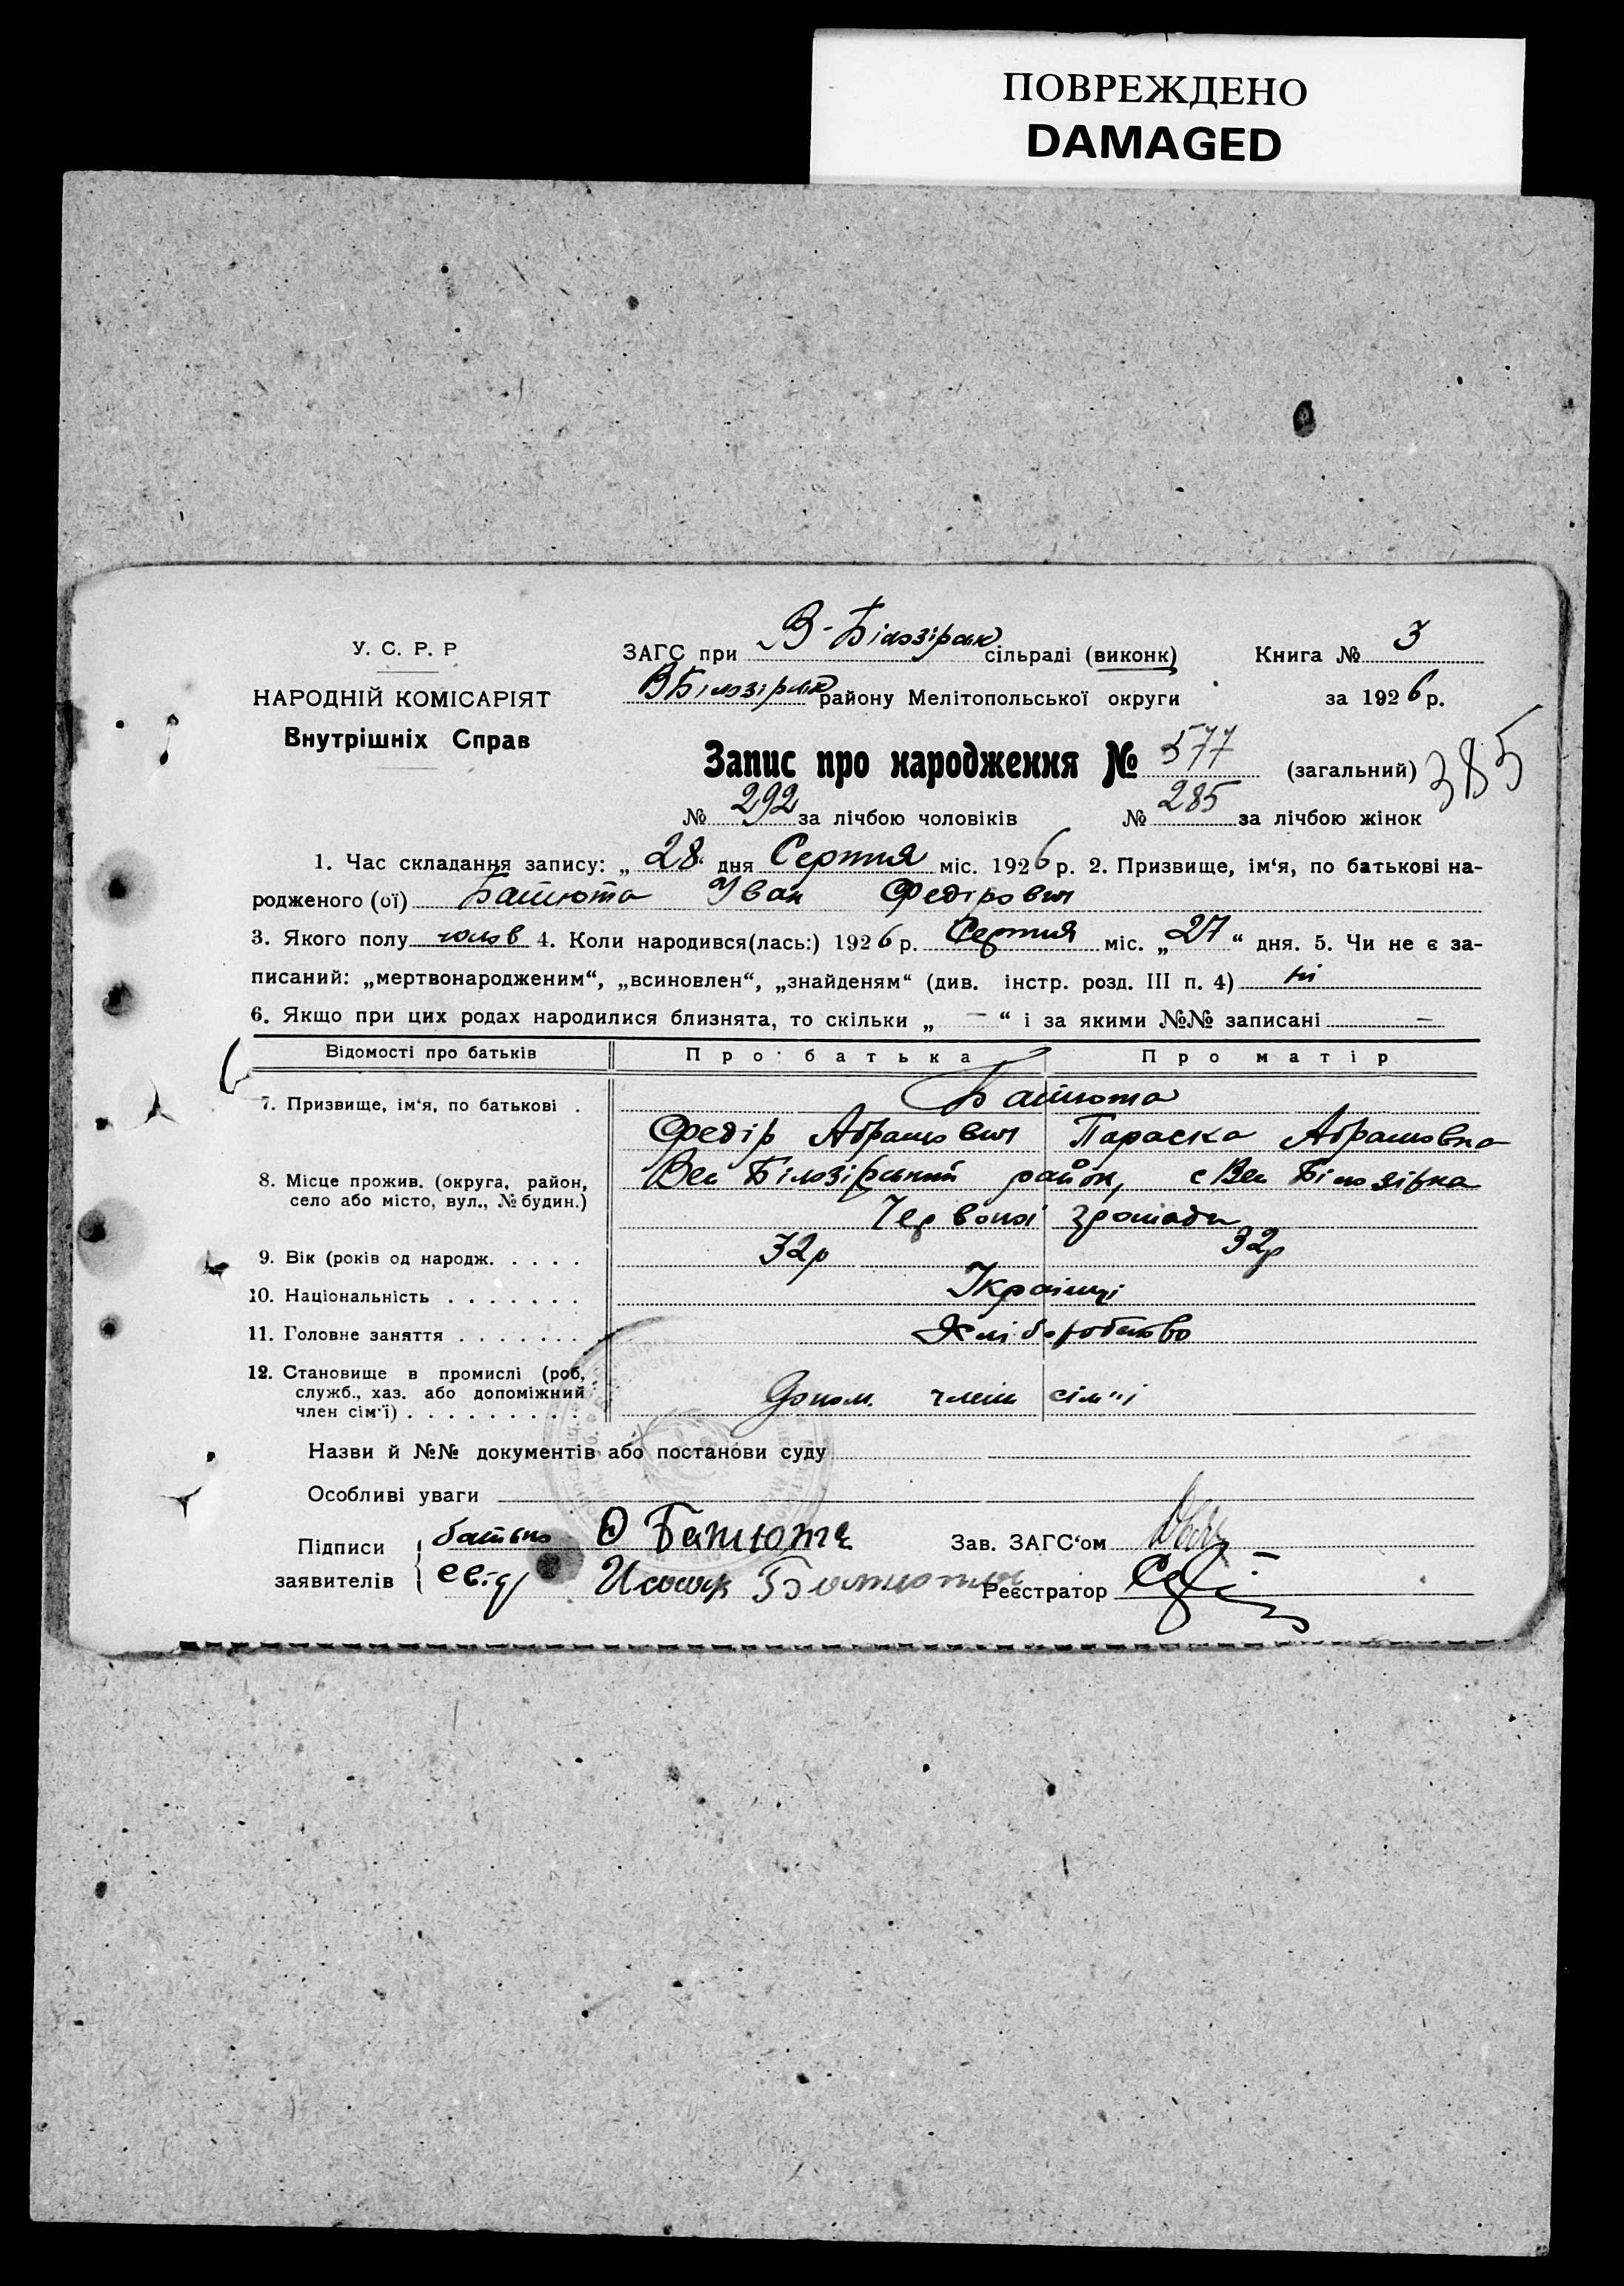 ПОВРЕЖДЕНО
DAMAGED
У. С. Р. Р
НАРОДНІЙ КОМІСАРІЯТ
Внутрішніх Справ
ЗАГС при В-Білозірськ сільраді (виконк) Книга № 3
ВБілозірськ району Мелітопольської округи за 1926 р.
Запис про народження № 577 (загальний) 385
№ 292 за лічбою чоловіків № 285 за лічбою жінок
1. Час складання запису: „ 28 дня Серпня міс. 1926 р. 2. Призвище, ім‘я, по батькові на-
родженого (ої) Батюта Іван Федірович
3. Якого полу чолов 4. Коли народився(лась:) 1926 р. Серпня міс. „27“ дня. 5. Чи не є за-
писаний: „мертвонародженим“, „всиновлен“, „знайденям“ (див. інстр. розд. III п. 4) ні
6. Якщо при цих родах народилися близнята, то скільки „ — “ і за якими №№ записані —
Відомості про батьків Про батька Про матір
7. Призвище, ім‘я, по батькові . Батюта
Федір Абрамович Параска Абрамовна
8. Місце прожив. (округа, район, село або місто, вул., № будин.) Вел Білозірський район, с Вел Білозірка
Червоної громади
9. Вік (років од народж. . . . . 32р 32р
10. Національність . . . . . . . Українці
11. Головне заняття . . . . . . . Хліборобство
12. Становище в промислі (роб, служб., хаз. або допоміжний член сім‘ї) . . . . . . . . . Допом. член сім"ї
Назви й №№ документів або постанови суду
Особливі уваги
Підписи заявителів батько Ф Батюта Зав. ЗАГС‘ом
свід Батюта Реєстратор